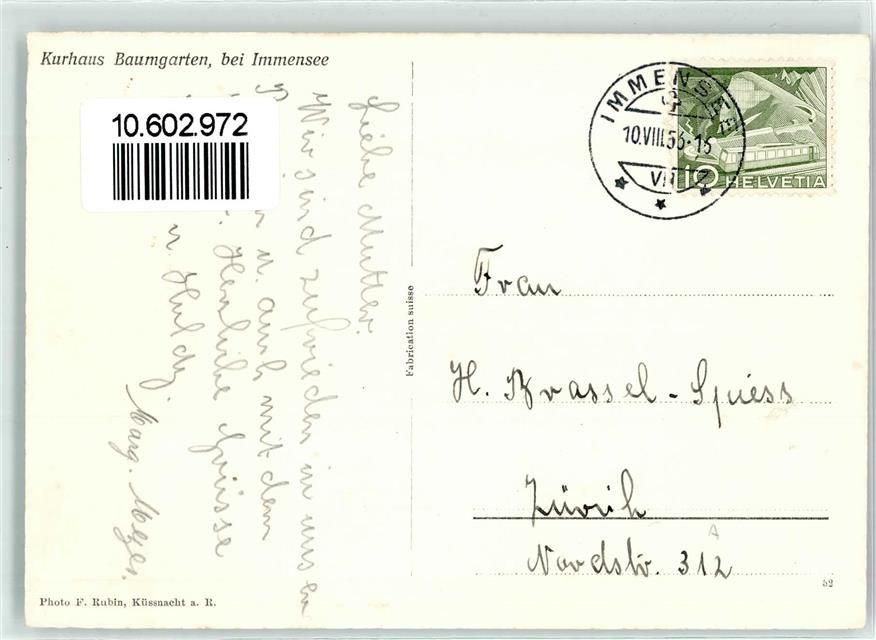 Kurhaus Baumgarten, bei Immensee
10.602.972
IMMENSEE
10.VIII.56-15
VII
10 HELVETIA
Liebe Mutter.
Wir sind zufrieden in
u. auch mit dem
Herzliche Grüsse
u. Huldy.
Marg. Meyer.
Fabrication suisse
Frau
H. Brassel-Spiess
Zürich
Nordstr. 312
A
52
Photo F. Rubin, Küssnacht a. R.